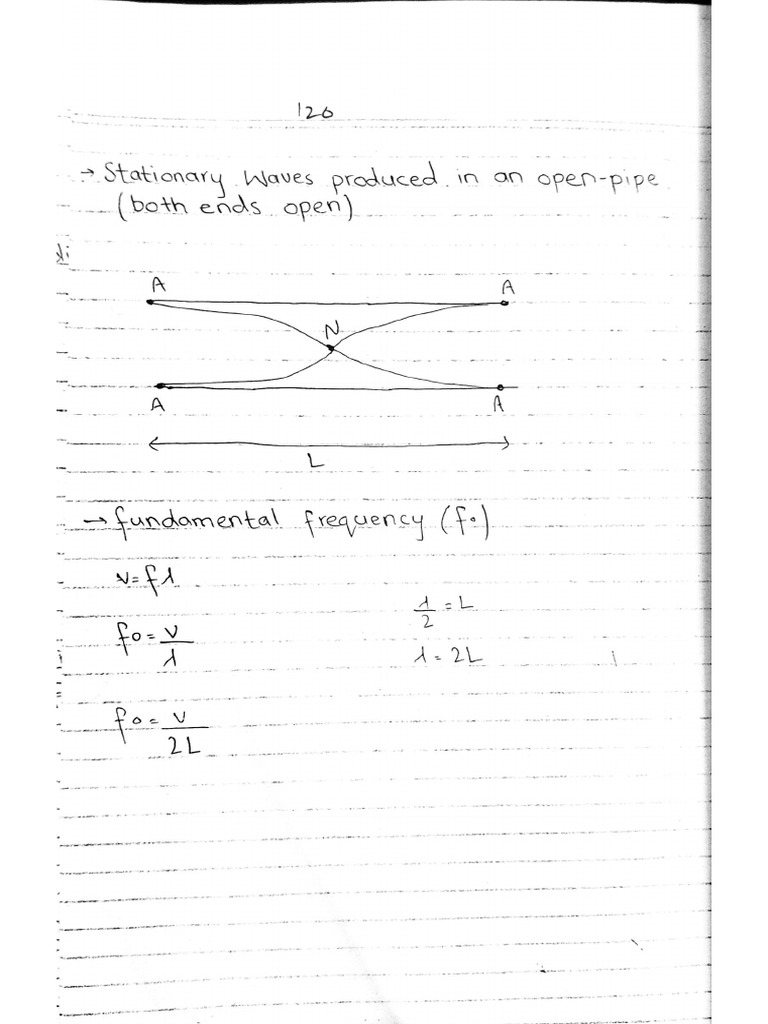 120
→ Stationary Waves produced in an open-pipe
(both ends open)
A A
N
A A
L
→ fundamental frequency (f∘)
v=fλ
λ/2 = L
fo = v/λ
λ = 2L
fo = v/2L